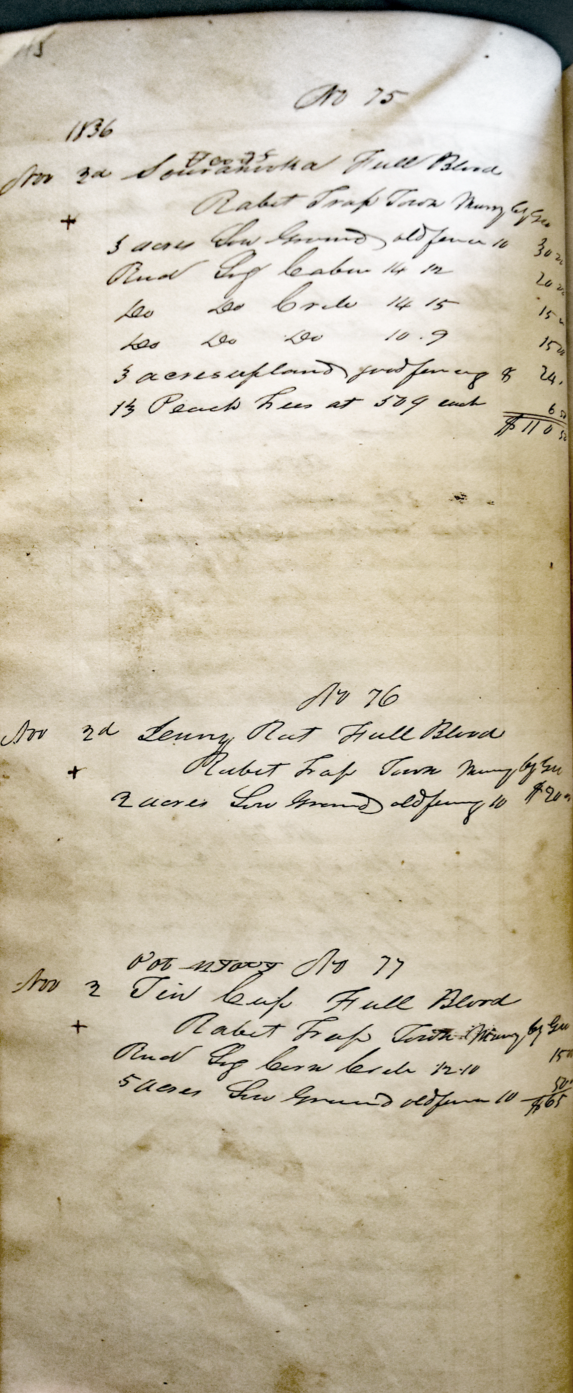 No 75
1836
Nov 2d Souranooka Full Blood
Rabet Trap Town Murry Cty Geo
3 acres Low Ground old fence 10 30
Rud Log Cabin 14 12 20
Do Do Crib 14 15 15
Do Do Do 10 . 9 15
3 acres upland good fencing 8 24
13 Peach Trees at 50¢ each 6 50
$110 50
No 76
Nov 2d Rat Full Blood
Rabet Trap Town Murry Cty Geo
2 acres Low Ground old fencing 10 $20
No 77
Nov 2 Tin Cup Full Blood
Rabet Trap Town Murry Cty Geo
Rud Log Corn Crib 12.10 15
5 acres Low Ground old fence 10 50
$65